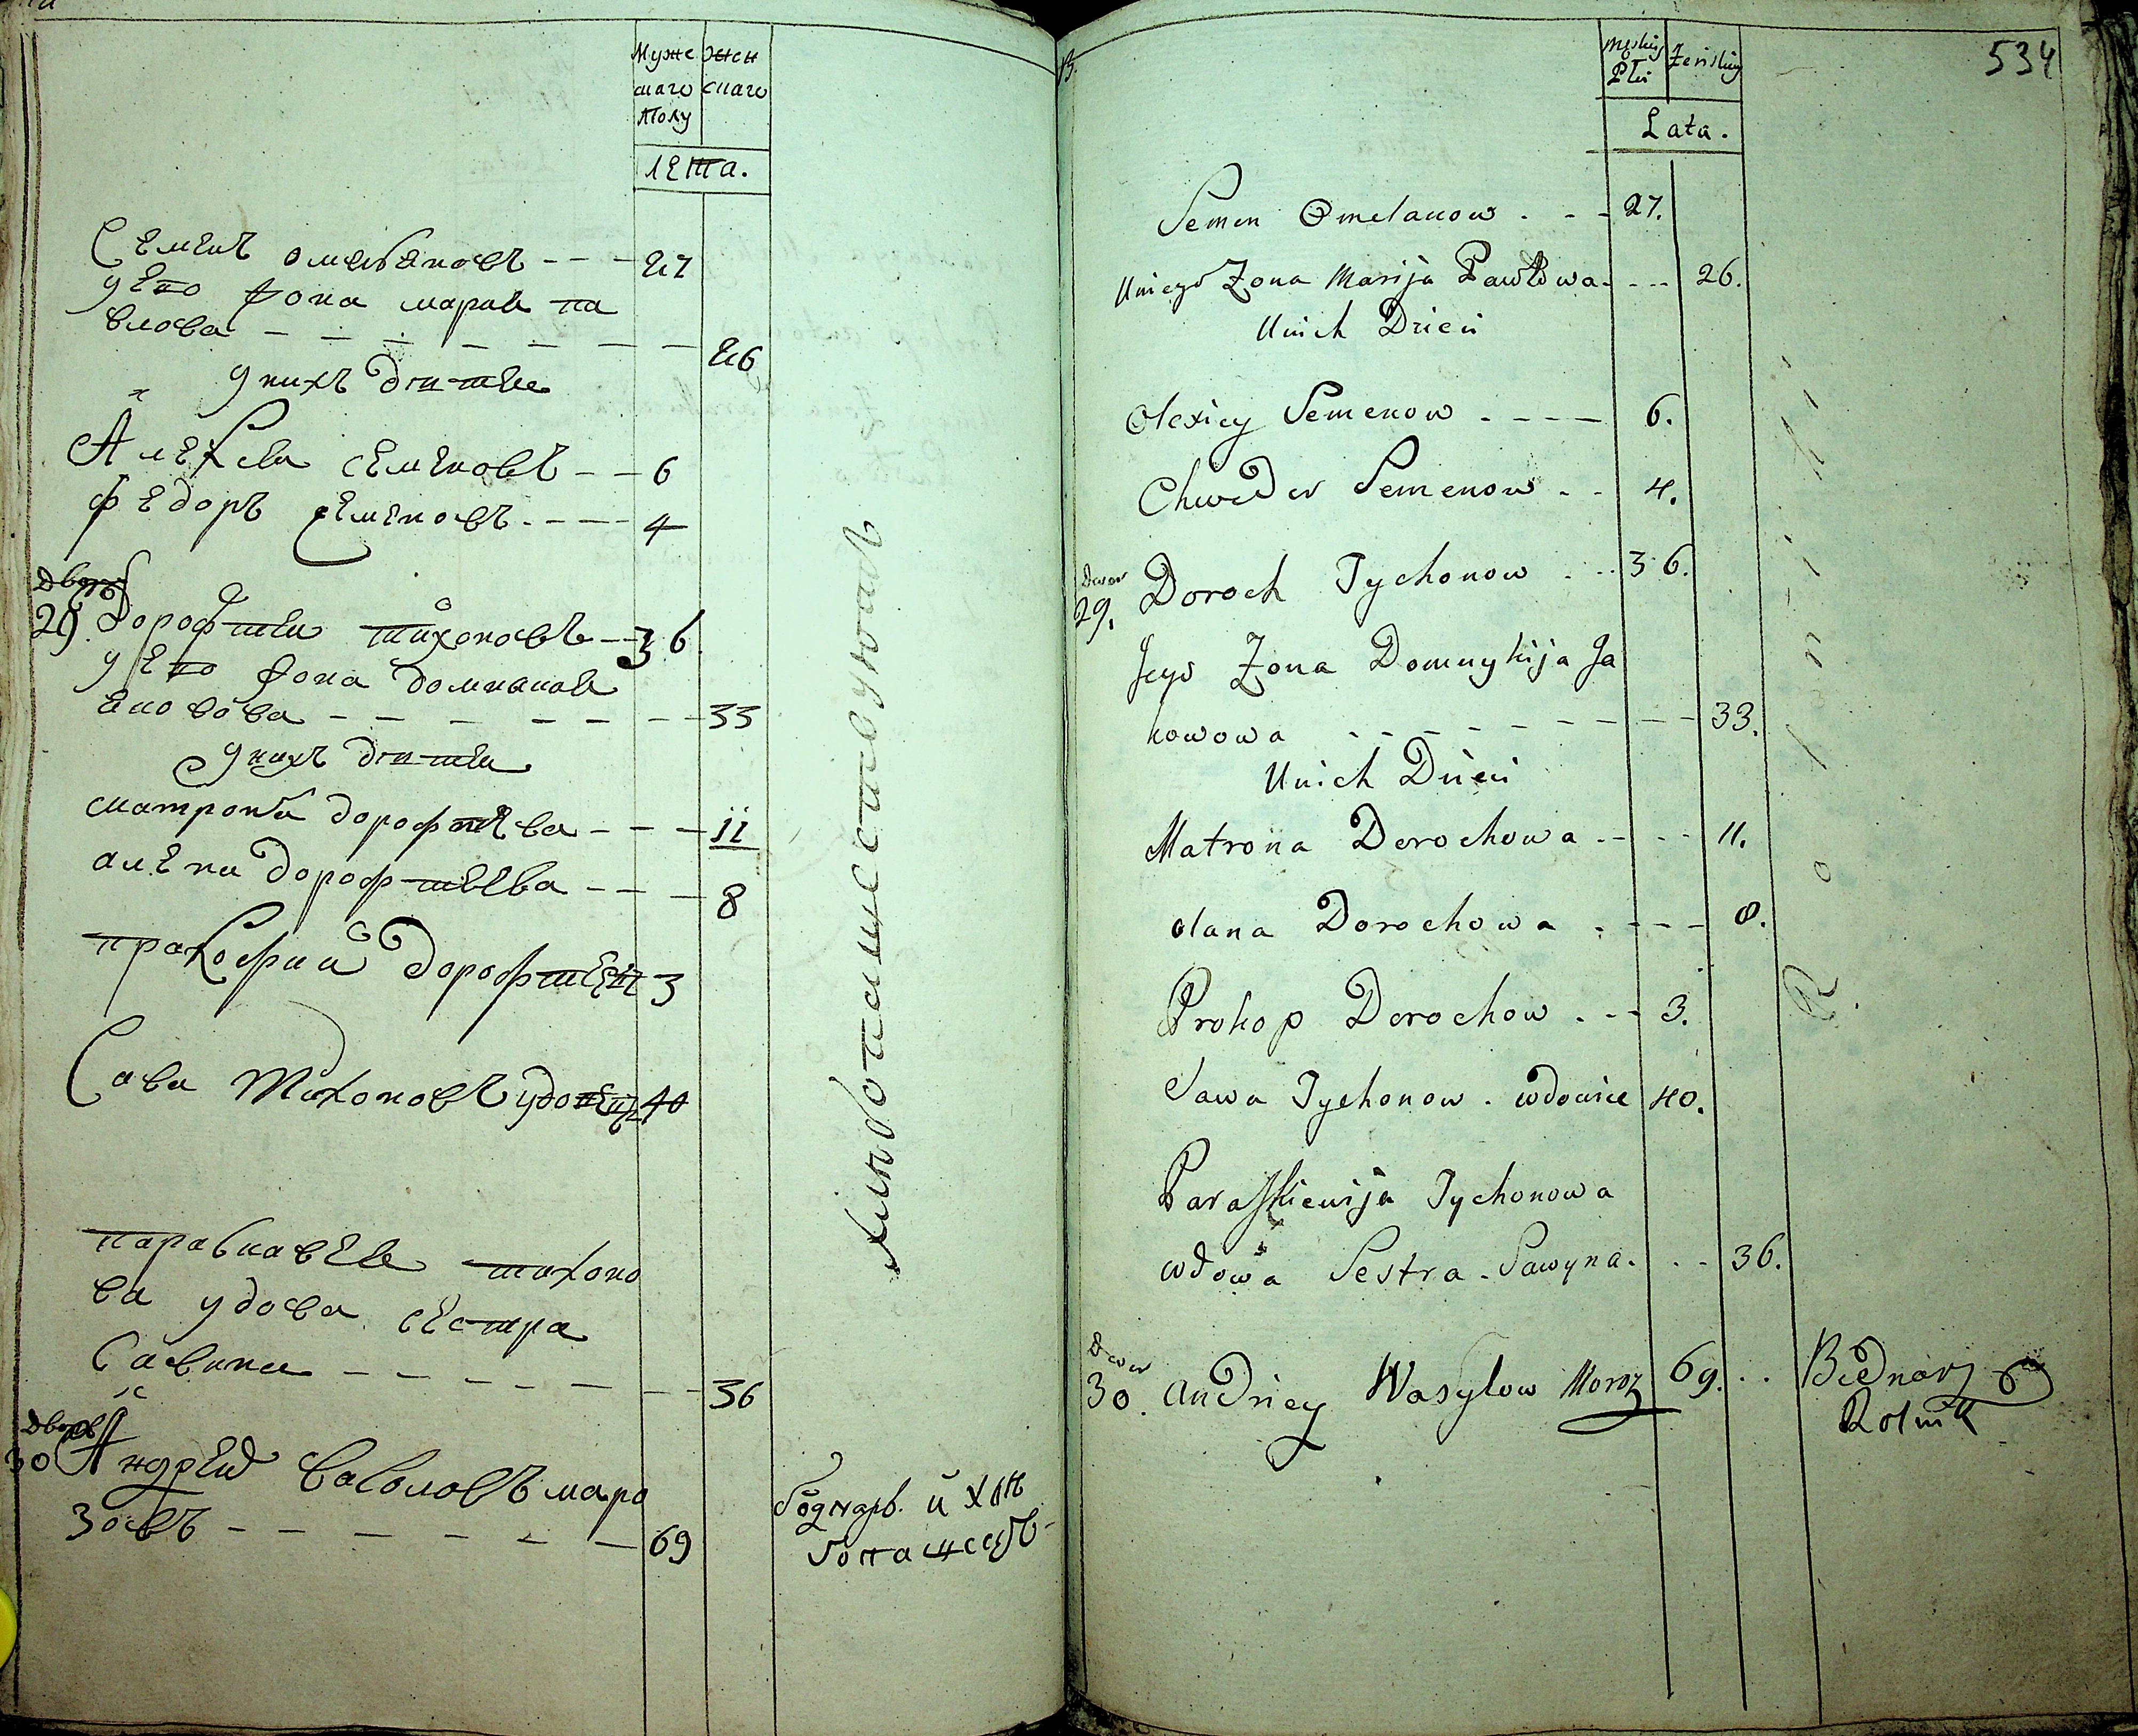 Муже
скаго
полу
Жен
скаго
лета.
Семенъ омеляновъ - - - 27
у его жона мария па
влова - - - - - - - 26
у нихъ дети
Алексей семеновъ - - 6
Федоръ семеновъ - - - 4
дворъ
29 Дорофтей тихоновъ - 36
у его жона домникия
яковова - - - - - - 33
у нихъ дети
матрона дорофтеева - - - 11
алена дорофтеева - - - 8
прокофий дорофтеевъ 3
Сава Тихоновъ удовец 40
паравкавея тихоно
ва удова сестра
Савина - - - - - - 36
дворъ
30 Андрей василовъ маро
зовъ - - - - - - 69
боднарь. и хле
бопашесць
хлебопашествують
534
męskiey
Płci
Żenskiey
Lata.
Semen Omelanow . - - 27.
Uniego Zona Marija Pawłowa - - - 26.
Unich Dzieci
Olexiey Semenow - - - - 6.
Chwedor Semenow . . 4.
Dwor
29. Doroch Tychonow . . . 36.
Jego Zona Domnykija Ja
kowowa - - - - - - - 33.
Unich Dzieci
Matrona Dorochowa - - - - 11.
Olana Dorochowa . - - - 8.
Prokop Dorochow . - - 3.
Sawa Tychonow . wdowiec 40.
Paraskiewija Tychonowa
wdowa Sestra Sawyna . . - 36.
Dwor
30. Andriey Wasylow Moroz 69. . . Bednarz
Rolnik
Rolniki